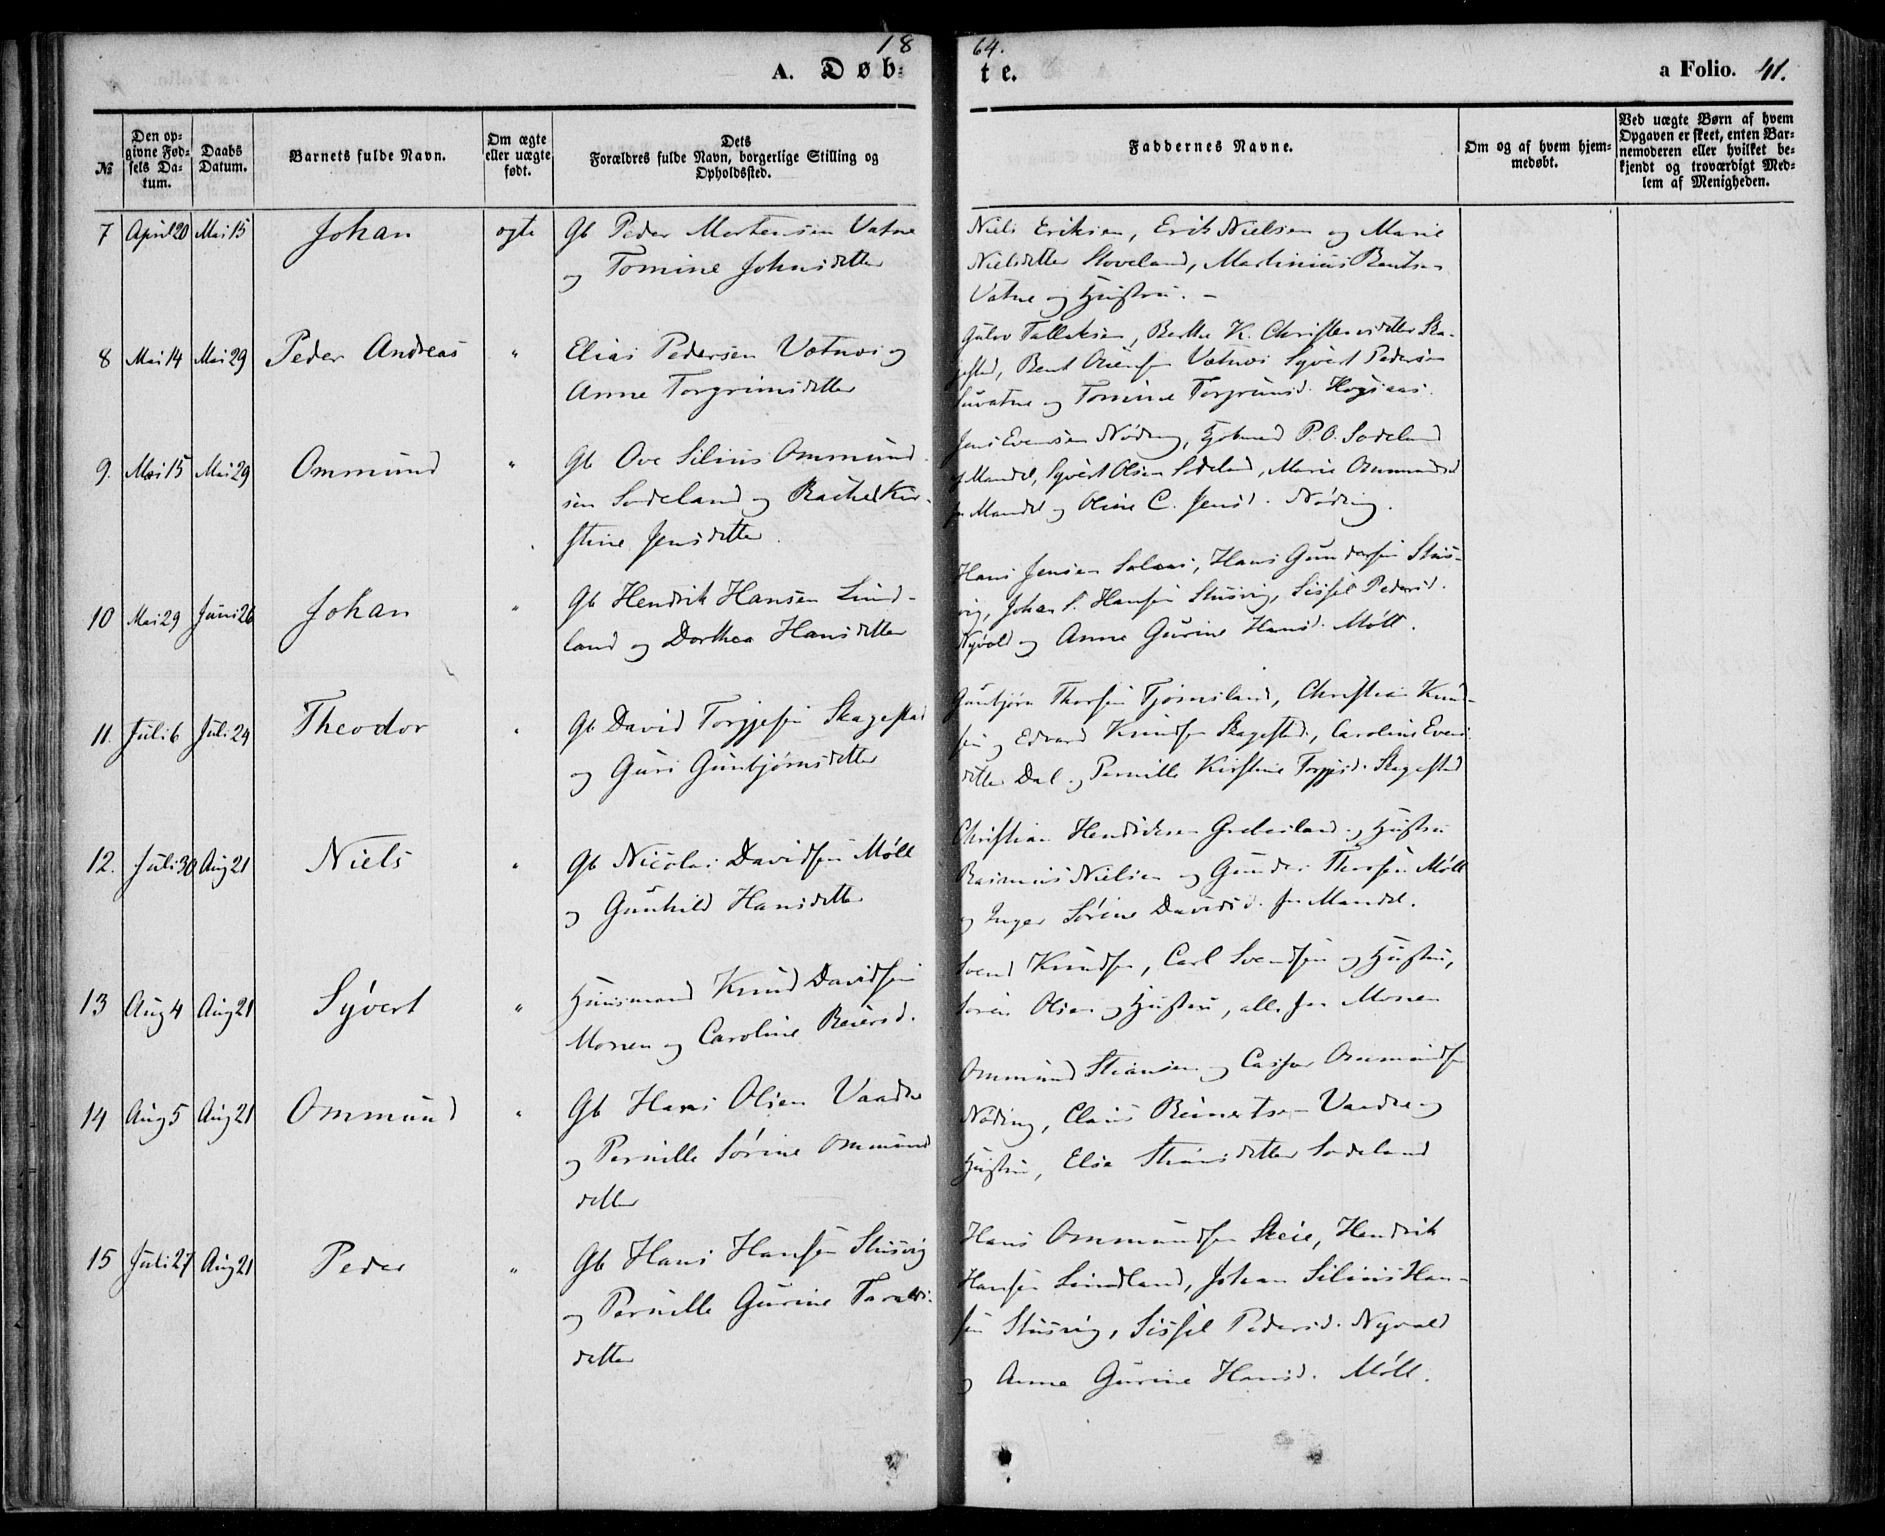 18 64.
A. Døb- te.
a Folio. 41.
№
Den op-
givne Fød-
sels Da-
tum.
Daabs
Datum.
Barnets fulde Navn.
Om ægte
eller uægte
født.
Dets
Forældres fulde Navn, borgerlige Stilling og
Opholdssted.
Faddernes Navne.
Om og af hvem hjem-
medøbt.
Ved uægte Børn af hvem
Opgaven er skeet, enten Bar-
nemoderen eller hvilket be-
kjendt og troværdigt Med-
lem af Menigheden.
7 April 20 Mai 15 Johan ægte Gb Peder Mortensen Vatne
og Tomine Johnsdatter
Niels Eriksen, Erik Nielsen og Marie
Nielsdatter Stoveland, Martinius Bentsen
Vatne og Hustru. -
8 Mai 14 Mai 29 Peder Andreas " Elias Pedersen Vatne og
Anne Torgrimsdatter
Gulov Tallaksen, Berthe K. Christensdatter Ska-
gestad, Bent Vatne Syvert Pedersen
og Tomine Torgrimsd.
9. Mai 15 Mai 29 Ommund " Gb Ove Silius Ommund-
sen Sodeland og Rachel Kir-
stine Jensdatter
Jens Evensen Nøding, P.O. Sodeland
Mandal, Syvert Olsen Sodeland, Marie Ommundsd
fra Mandal og Oline C. Jensd. Nøding.
10 Mai 29 Juni 26 Johan " Gb Hendrik Hansen Lund-
land og Dorthea Hansdatter
Hans Jensen Solaas, Hans Gundersen Stus-
vig, Johan S. Hansen Stusvig, Sissel Pedersd.
Nyvold og Anne Gurine Hansd. Møll.
11. Juli 6 Juli 24 Theodor " Gb David Torgjesen Skagestad
og Guri Gunbjørnsdatter
Gunbjørn Thorsen Tjomsland, Christian Knud-
sen og Edvard Knudsen Skagestad, Caroline Evens-
datter Dal og Pernille Kirstine Torgjesd. Skagestad
12. Juli 30 Aug 21 Niels " Gb Nicolai Davidsen Møll
og Gunhild Hansdatter
Christian Hendriksen Greibsland og Hustru
Rasmus Nielsen og Gunder Thorsen Møll
og Inger Sørine Davidsd. fra Mandal.
13 Aug 4 Aug 21 Syvert " Huusmand Knud Davidsen
Monen og Caroline Reiersd.
Svend Knudsen, Carl Svendsen og Hustru,
Søren Olsen og Hustru, alle fra Monen
14 Aug 5 Aug 21 Ommund " Gb Hans Olsen Vaadne
og Pernille Sørine Ommunds-
datter
Ommund Stiansen og Casper Ommundsen
Nøding, Claus Reinertsen Vaadne og
Hustru, Elsa Stiansdatter Sodeland
15 Juli 27 Aug 21 Peder " Gb Hans Hansen Stusvig
og Pernille Gurine Taralds-
datter
Hans Ommundsen Skeie, Hendrik
Hansen Lundland, Johan Silius Han-
sen Stusvig, Sissel Pedersd. Nyvold
og Anne Gurine Hansd. Møll.